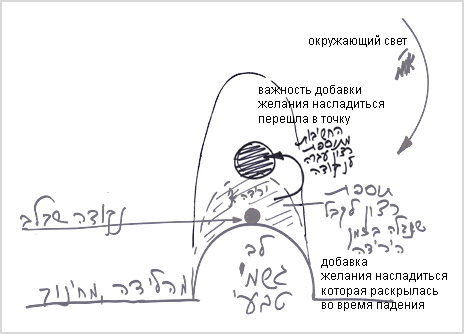 окружающий свет
או"מ
важность добавки
желания насладиться
перешла в точку
החשיבות
מתוספת
רצון עברה
לנקודה
ירידה
תוספת
רצון לקבל
שנתגלה בזמן
הירידה
נקודה שבלב
לב
גשמי
טבעי
добавка
желания насладиться
которая раскрылась
во время падения
מהלידה, מחינוך